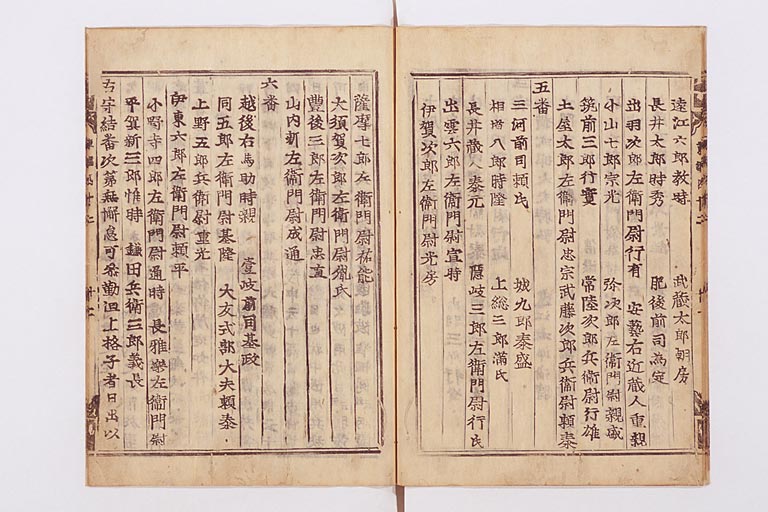 遠江六郎教時　武藏太郎朝房
長井太郎時秀　肥後前司為定
出羽次郎左衞門尉行有　安藝右近蔵人重親
小山七郎宗光　弥次郎左衞門尉親盛
筑前三郎行實　常陸次郎兵衞尉行雄
土屋太郎左衞門尉忠宗武藤次郎兵衞尉頼泰
五番
三河前司頼氏　城九郎泰盛
相摸八郎時隆　上総三郎満氏
長井蔵人泰元　隱岐三郎左衞門尉行氏
出雲六郎左衞門尉宣時
伊賀次郎左衞門尉光房
薩摩七郎左衞門尉祐能
大須賀次郎左衞門尉胤氏
豐後三郎左衞門尉忠直
山内新左衞門尉成通
六番
越後右馬助時親　壹岐前司基政
同五郎左衞門尉基隆　大友式部大夫頼泰
上野五郎兵衞尉重光
伊東六郎左衞門尉頼平
小野寺四郎左衞門尉通時　長雅樂左衞門尉
平賀新三郎惟時　鎌田兵衞三郎義長
右守結番次第無懈怠可参勤但上格子者日出以